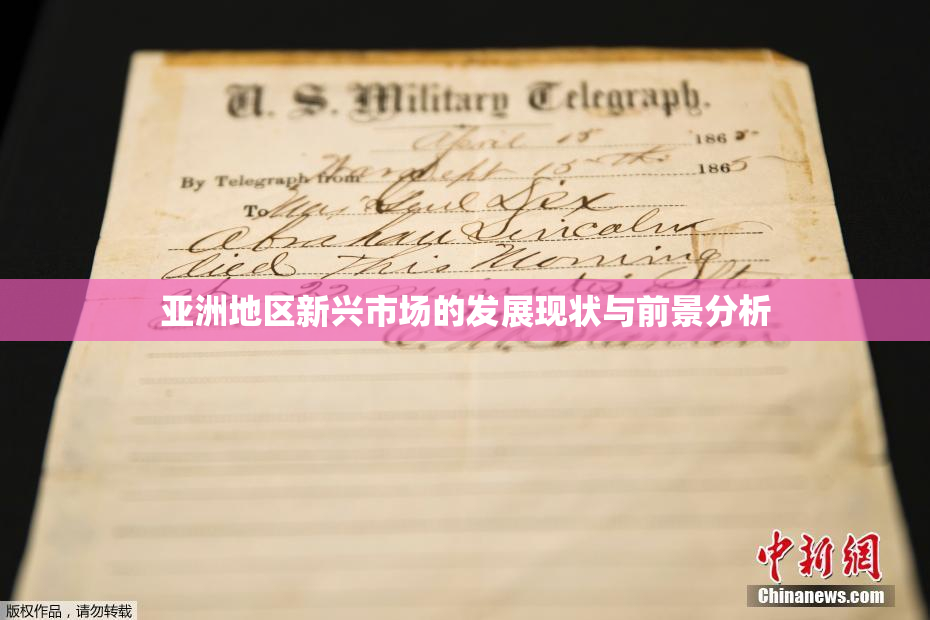 U. S. Military Telegraph.
April 15 1865
By Telegraph from War Dept 15th 1865
To Maj Genl Dix
Abraham Lincoln
died This Morning
at 22 minutes after
亚洲地区新兴市场的发展现状与前景分析
E. M. Stanton
中新網
Chinanews.com
版权作品，请勿转载